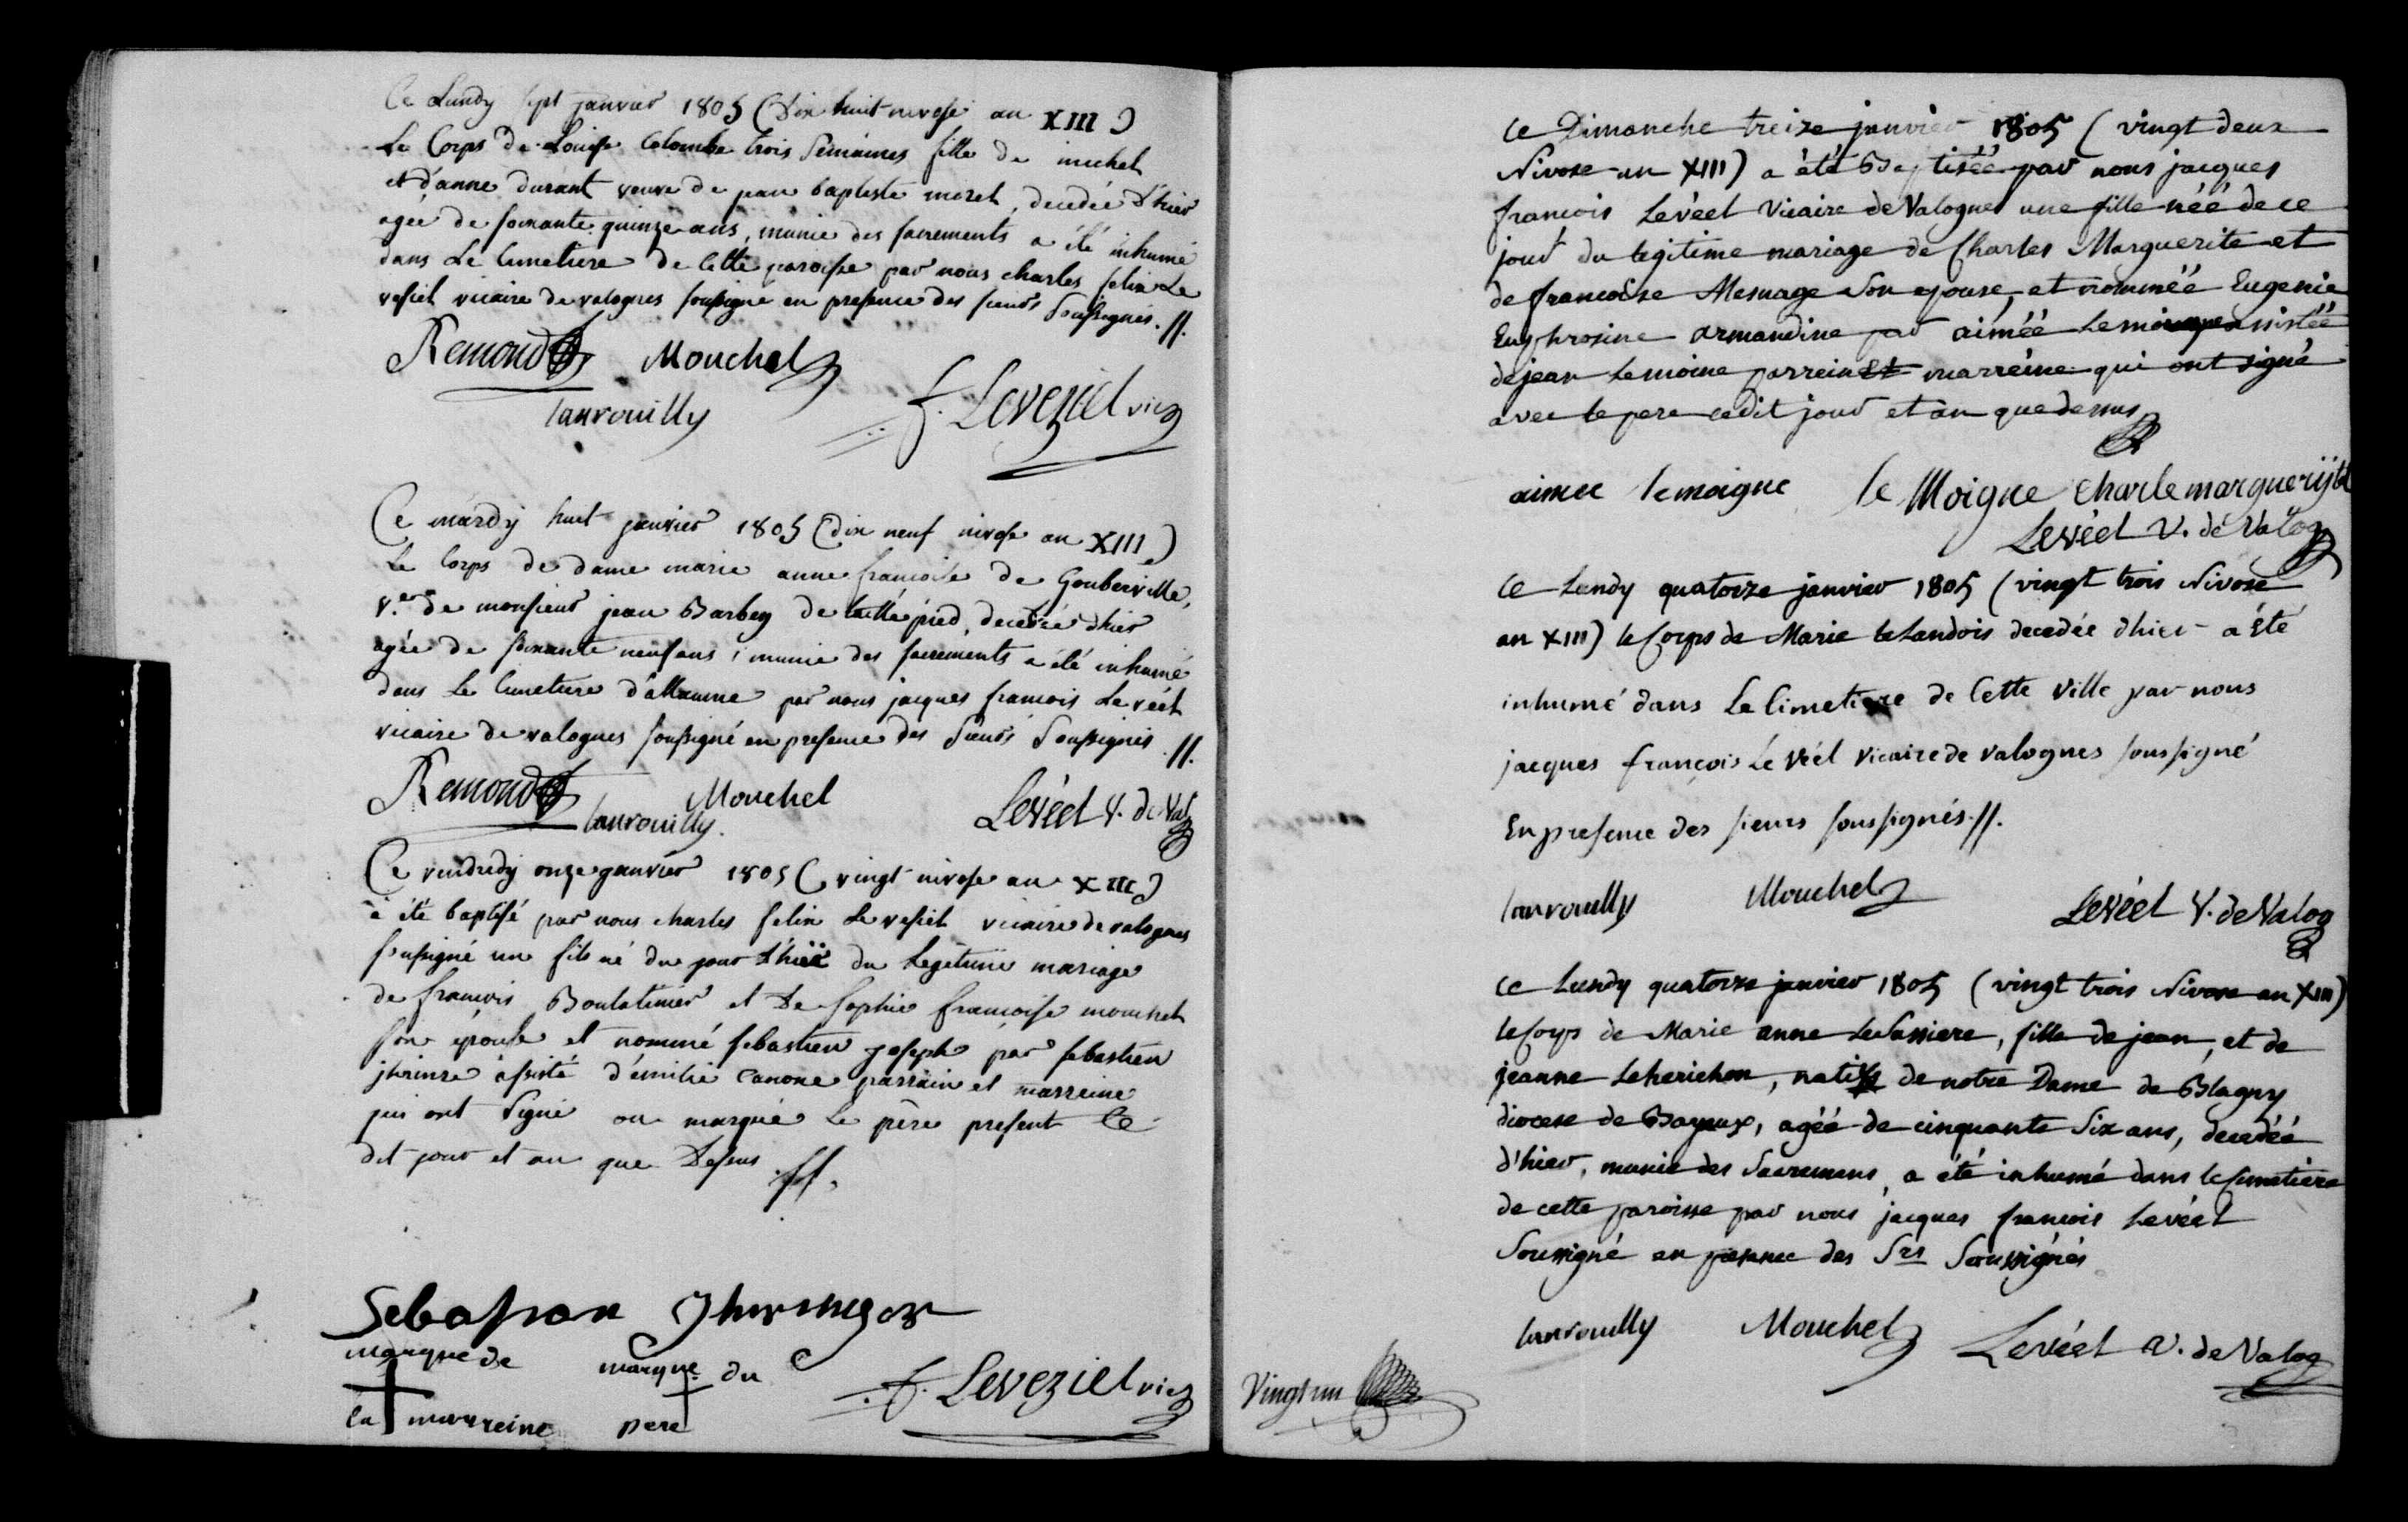 Ce Lundy sept janvier 1805 (Dix huit nivose an XIII)
Le Corps de Louise Colombe trois Semaines fille de michel
et d'anne durant veuve de jean baptiste moret, decedée d'hier
agée de soixante quinze ans, munie des sacrements a été inhumé
dans Le Cimetiere de Cette paroisse par nous charles felix Le
vesiel vicaire de valognes soussigné en presence des sieurs Soussignés.//.
Remond Mouchel
Tanrouilly f. Leveziel vic
Ce mardy huit janvier 1805 (dix neuf nivose an XIII)
Le Corps de dame marie anne francoise de Gouberville,
v.e de monsieur jean Barbey de taillepied, decedée dhier
agée de soixante neuf ans, munie des sacrements a été inhumé
dans Le Cimetiere d'alleaume par nous jacques francois Le véel
vicaire de valognes soussigné en presence des Sieurs Soussignés.//.
Remond Mouchel
Tanrouilly. Levéel V. de Val
Ce vendredy onze janvier 1805 (vingt nivose an XIII)
a été baptisé par nous charles felix Le vesiel vicaire de valognes
soussigné un fils né du jour d'hier du Legitime mariage
de françois Boulatinier et De sophie francoise mouchel
son épouse et nommé sebastien joseph par sebastien
assisté d'émilie canone parrain et marreine
qui ont Signé ou marqué Le père present Ce
dit jour et an que Dessus.//.
marque de marque du
la marreine pere
f. Leveziel vic
Vingt un
Ce Dimanche treize janvier 1805 (vingt deux
Nivose an XIII) a été Baptisée par nous jacques
francois Levéel Vicaire de Valognes une fille née de ce
jour du legitime mariage de Charles Marguerite et
de francoise Mesnage son epouse, et nommée Eugenie
Euphrosine armandine par aimée Lemoigne assistée
de jean Lemoine parrein et marreine qui ont signé
avec le pere cedit jour et an que dessus
aimee lemoigne le Moigne charle marguerijte
Levéel V. de Valog
Ce Lundy quatorze janvier 1805 (vingt trois Nivose
an XIII) le Corps de Marie le Landois decedée dhier a été
inhumé dans Le Cimetiere de Cette Ville par nous
jacques françois Le Véel Vicaire de valognes soussigné
En presence des sieurs soussignés.//.
Tanrouilly Mouchel Levéel V. de Valog
Ce Lundy quatorze janvier 1805 (vingt trois Nivose an XIII)
le Corps de Marie anne LeVassiere, fille de jean, et de
jeanne Leherichon, native de notre Dame de Blagny
diocese de Bayeux, agée de cinquante Six ans, decedée
d'hier, munie des Sacremens, a été inhumé dans le Cimetiere
de cette paroisse par nous jacques francois Levéel
Soussigné en presence des Srs Soussignés
Tanrouilly Mouchel Levéel V. de Valog